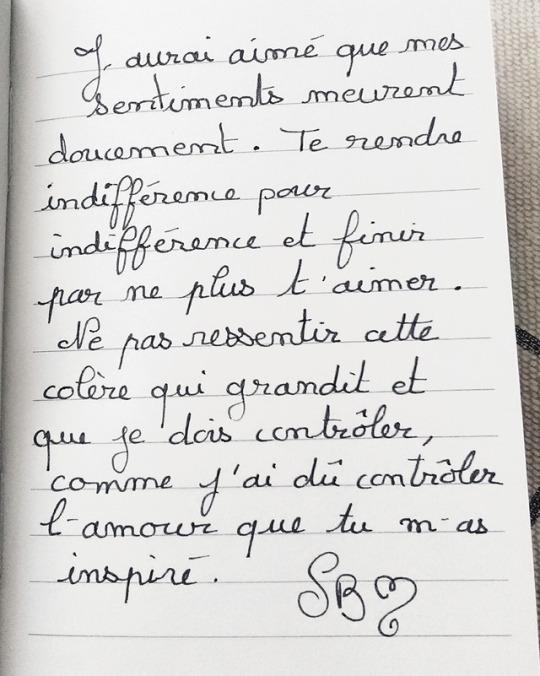 J'aurai aimé que mes
sentiments meurent
doucement. Te rendre
indifférence pour
indifférence et finir
par ne plus t'aimer.
Ne pas ressentir cette
colère qui grandit et
que je dois contrôler,
comme j'ai dû contrôler
l'amour que tu m'as
inspiré.
SB